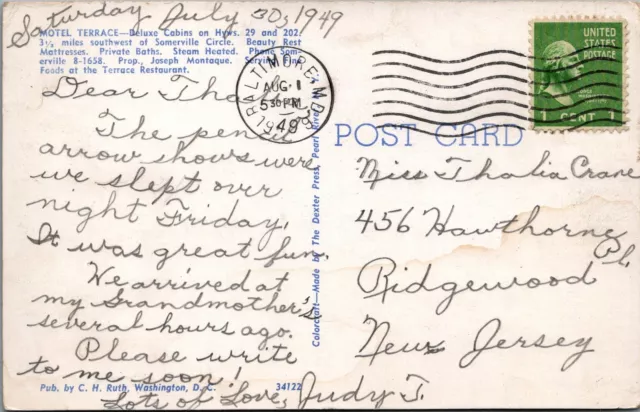 Saturday July 30, 1949
MOTEL TERRACE—Deluxe Cabins on Hyws. 29 and 202.
3½ miles southwest of Somerville Circle. Beauty Rest
Mattresses. Private Baths. Steam Heated. Phone Som-
erville 8-1658. Prop., Joseph Montaque. Serving Fine
Foods at the Terrace Restaurant.
BALTIMORE, MD.
AUG 1
5 30 PM
1949
UNITED
STATES
POSTAGE
1 CENT 1
Dear Thalia,
The pencil
arrow shows were
we slept over
night Friday.
It was great fun.
We arrived at
my Grandmother's
several hours ago.
Please write
to me soon!
Lots of Love, Judy T.
POST CARD
Miss Thalia Crane
456 Hawthorne
Pl.
Ridgewood
New Jersey
Colorcraft—Made by The Dexter Press, Pearl River
Pub. by C. H. Ruth, Washington, D. C.
34122